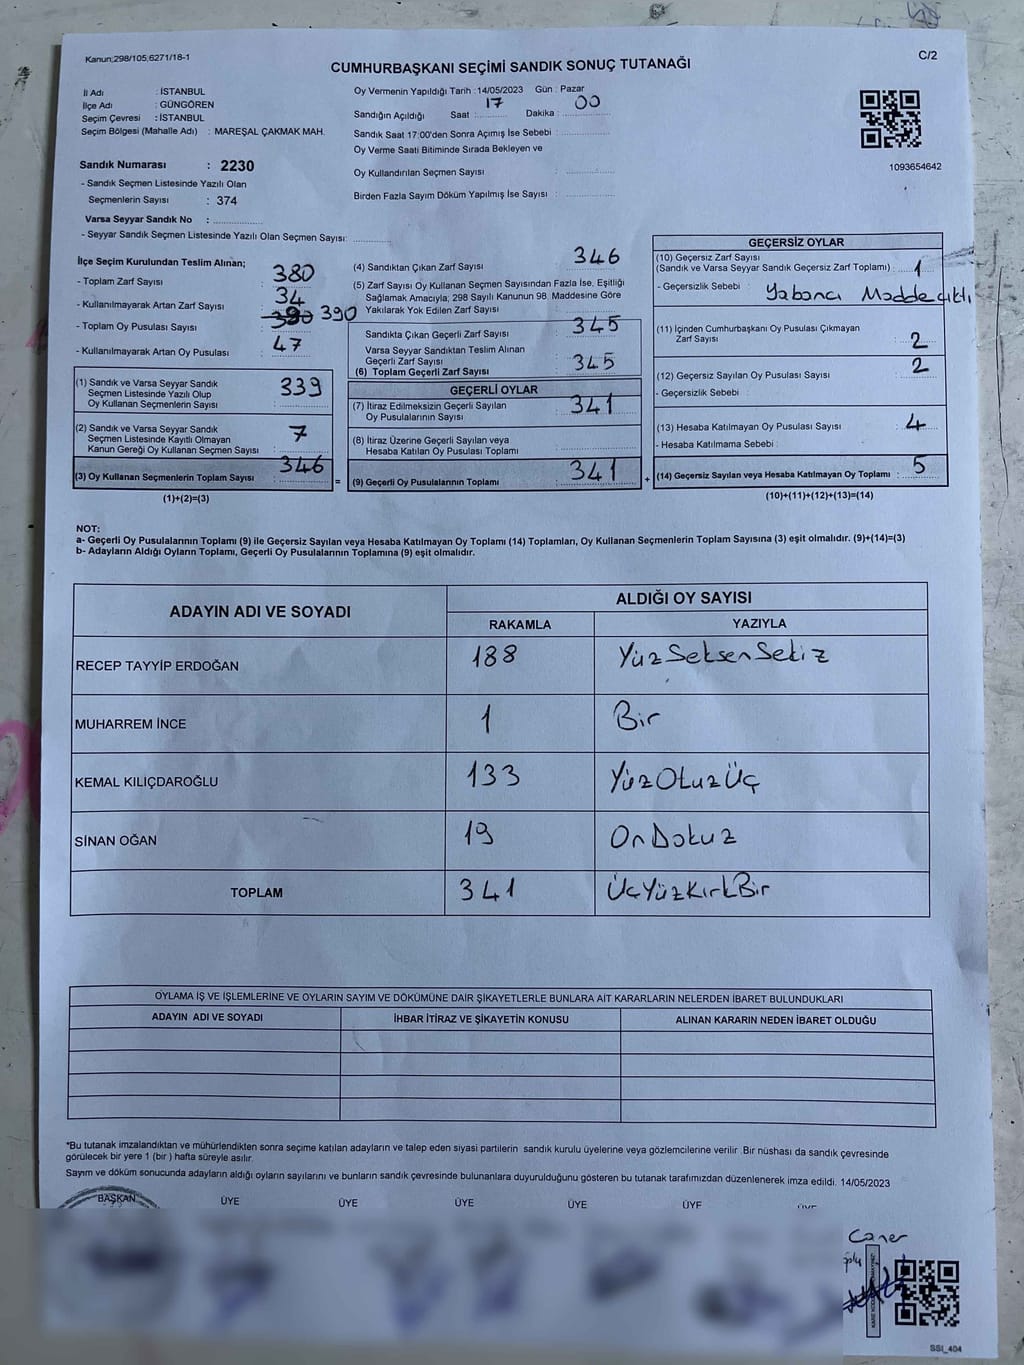 Kanun;298/105;6271/18-1
C/2
CUMHURBAŞKANI SEÇİMİ SANDIK SONUÇ TUTANAĞI
İl Adı : İSTANBUL
İlçe Adı : GÜNGÖREN
Seçim Çevresi : İSTANBUL
Seçim Bölgesi (Mahalle Adı) : MAREŞAL ÇAKMAK MAH.
Sandık Numarası : 2230
- Sandık Seçmen Listesinde Yazılı Olan
Seçmenlerin Sayısı : 374
Varsa Seyyar Sandık No :
- Seyyar Sandık Seçmen Listesinde Yazılı Olan Seçmen Sayısı:
Oy Vermenin Yapıldığı Tarih : 14/05/2023 Gün : Pazar
Sandığın Açıldığı Saat 17 Dakika : 00
Sandık Saat 17:00'den Sonra Açımış İse Sebebi :
Oy Verme Saati Bitiminde Sırada Bekleyen ve
Oy Kullandırılan Seçmen Sayısı :
Birden Fazla Sayım Döküm Yapılmış İse Sayısı :
1093654642
İlçe Seçim Kurulundan Teslim Alınan;
- Toplam Zarf Sayısı : 380
- Kullanılmayarak Artan Zarf Sayısı : 34
- Toplam Oy Pusulası Sayısı : 390 390
- Kullanılmayarak Artan Oy Pusulası : 47
(1) Sandık ve Varsa Seyyar Sandık
Seçmen Listesinde Yazılı Olup
Oy Kullanan Seçmenlerin Sayısı : 339
(2) Sandık ve Varsa Seyyar Sandık
Seçmen Listesinde Kayıtlı Olmayan
Kanun Gereği Oy Kullanan Seçmen Sayısı : 7
(3) Oy Kullanan Seçmenlerin Toplam Sayısı : 346
(1)+(2)=(3)
=
(4) Sandıktan Çıkan Zarf Sayısı : 346
(5) Zarf Sayısı Oy Kullanan Seçmen Sayısından Fazla İse, Eşitliği
Sağlamak Amacıyla; 298 Sayılı Kanunun 98. Maddesine Göre
Yakılarak Yok Edilen Zarf Sayısı :
Sandıkta Çıkan Geçerli Zarf Sayısı : 345
Varsa Seyyar Sandıktan Teslim Alınan
Geçerli Zarf Sayısı :
(6) Toplam Geçerli Zarf Sayısı : 345
GEÇERLİ OYLAR
(7) İtiraz Edilmeksizin Geçerli Sayılan
Oy Pusulalarının Sayısı : 341
(8) İtiraz Üzerine Geçerli Sayılan veya
Hesaba Katılan Oy Pusulası Toplamı :
(9) Geçerli Oy Pusulalarının Toplamı : 341
+
GEÇERSİZ OYLAR
(10) Geçersiz Zarf Sayısı
(Sandık ve Varsa Seyyar Sandık Geçersiz Zarf Toplamı) : 1
- Geçersizlik Sebebi : Yabancı Madde çıktı
(11) İçinden Cumhurbaşkanı Oy Pusulası Çıkmayan
Zarf Sayısı : 2
(12) Geçersiz Sayılan Oy Pusulası Sayısı : 2
- Geçersizlik Sebebi :
(13) Hesaba Katılmayan Oy Pusulası Sayısı : 4
- Hesaba Katılmama Sebebi :
(14) Geçersiz Sayılan veya Hesaba Katılmayan Oy Toplamı : 5
(10)+(11)+(12)+(13)=(14)
NOT:
a- Geçerli Oy Pusulalarının Toplamı (9) ile Geçersiz Sayılan veya Hesaba Katılmayan Oy Toplamı (14) Toplamları, Oy Kullanan Seçmenlerin Toplam Sayısına (3) eşit olmalıdır. (9)+(14)=(3)
b- Adayların Aldığı Oyların Toplamı, Geçerli Oy Pusulalarının Toplamına (9) eşit olmalıdır.
ADAYIN ADI VE SOYADI
ALDIĞI OY SAYISI
RAKAMLA YAZIYLA
RECEP TAYYİP ERDOĞAN 188 YüzSeksenSekiz
MUHARREM İNCE 1 Bir
KEMAL KILIÇDAROĞLU 133 YüzOtuzÜç
SİNAN OĞAN 19 OnDokuz
TOPLAM 341 ÜçYüzKırkBir
OYLAMA İŞ VE İŞLEMLERİNE VE OYLARIN SAYIM VE DÖKÜMÜNE DAİR ŞİKAYETLERLE BUNLARA AİT KARARLARIN NELERDEN İBARET BULUNDUKLARI
ADAYIN ADI VE SOYADI İHBAR İTİRAZ VE ŞİKAYETİN KONUSU ALINAN KARARIN NEDEN İBARET OLDUĞU
*Bu tutanak imzalandıktan ve mühürlendikten sonra seçime katılan adayların ve talep eden siyasi partilerin sandık kurulu üyelerine veya gözlemcilerine verilir .Bir nüshası da sandık çevresinde
görülecek bir yere 1 (bir ) hafta süreyle asılır.
Sayım ve döküm sonucunda adayların aldığı oyların sayılarını ve bunların sandık çevresinde bulunanlara duyurulduğunu gösteren bu tutanak tarafımızdan düzenlenerek imza edildi. 14/05/2023
BAŞKAN ÜYE ÜYE ÜYE ÜYE ÜYE ÜYE
Caner
SSI_404